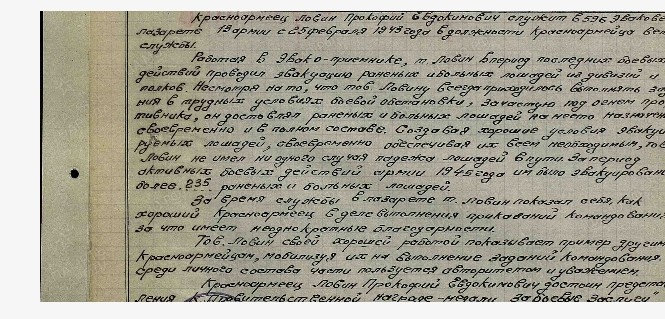 Красноармеец Ловин Прокофий Евдокимович служит в 596 Эвако
лазарете 19 армии с 25 февраля 1943 года в должности красноармейца вет
службы.
Работая в Эвако-приемнике, т. Ловин в период последних боевых
действий проводил эвакуацию раненых и больных лошадей из дивизий и
полков. Несмотря на то, что тов. Ловину всегда приходилось выполнять за
ния в трудных условиях боевой обстановки, зачастую под огнем про
тивника, он доставлял раненых и больных лошадей на место назначен
своевременно и в полном составе. Создавая хорошие условия эваку
руемых лошадей, своевременно обеспечивая их всем необходимым, тов
Ловин не имел ни одного случая падежа лошадей в пути. За период
активных боевых действий армии 1945 года им было эвакуирован
более 235 раненых и больных лошадей.
За время службы в лазарете т. Ловин показал себя, как
хороший Красноармеец в деле выполнения приказаний командовани
за что имеет неоднократные благодарности.
Тов. Ловин своей хорошей работой показывает пример другим
красноармейцам, мобилизуя их на выполнение заданий командования.
Среди личного состава части пользуется авторитетом и уважением.
Красноармеец Ловин Прокофий Евдокимович достоин предста
ления к Правительственной награде - медали "За боевые заслуги"